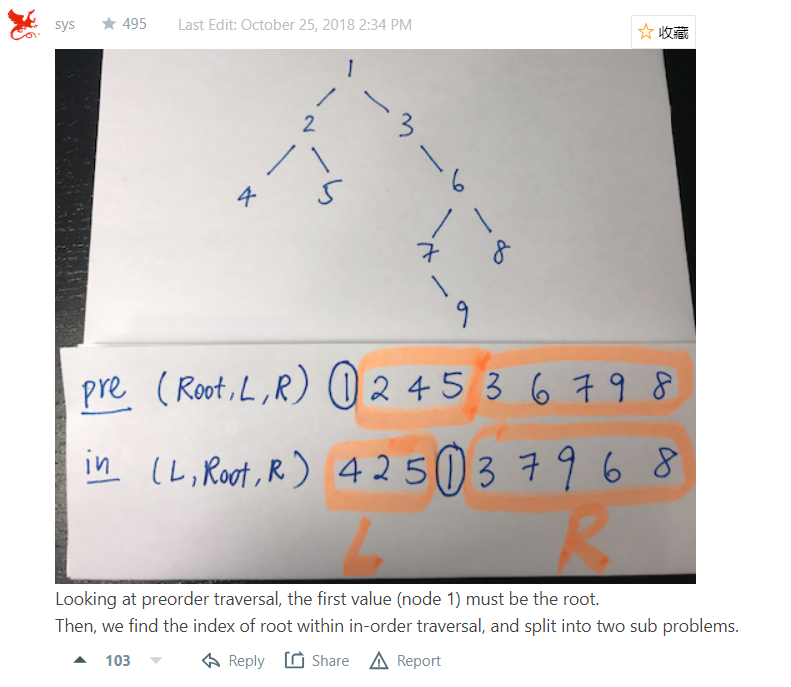 sys ★ 495 Last Edit: October 25, 2018 2:34 PM
☆ 收藏
1
2 3
4 5 6
7 8
9
pre (Root, L, R) ① 2 4 5 3 6 7 9 8
in (L, Root, R) 4 2 5 ① 3 7 9 6 8
L R
Looking at preorder traversal, the first value (node 1) must be the root.
Then, we find the index of root within in-order traversal, and split into two sub problems.
103 Reply Share Report